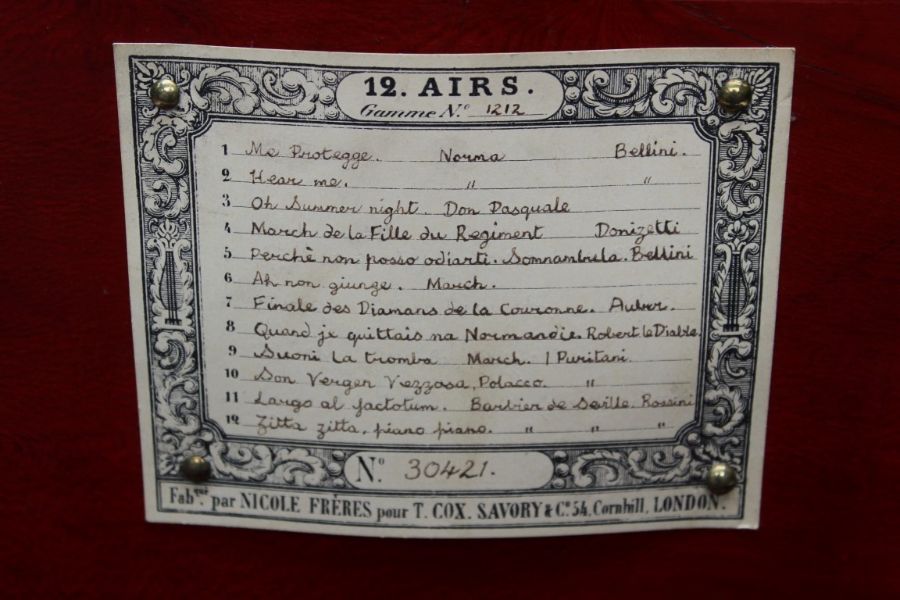 12. AIRS.
Gamme N.º 1212
1 Me Protegge. Norma Bellini.
2 Hear me. " "
3 Oh Summer night. Don Pasquale
4 March de la Fille du Regiment Donizetti
5 Perchè non posso odiarti. Somnambula. Bellini
6 Ah non giunge. March.
7 Finale des Diamans de la Couronne. Auber.
8 Quand je quittais na Normandie. Robert le Diable
9 Suoni la tromba March. I Puritani
10 Son Vergen Vezzosa, Polacco. "
11 Largo al factotum. Barbier de Seville. Rossini
12 Zitta zitta, piano piano. " " "
Nº 30421.
Fabqué par NICOLE FRÈRES pour T. COX. SAVORY & Cº 54, Cornhill, LONDON.